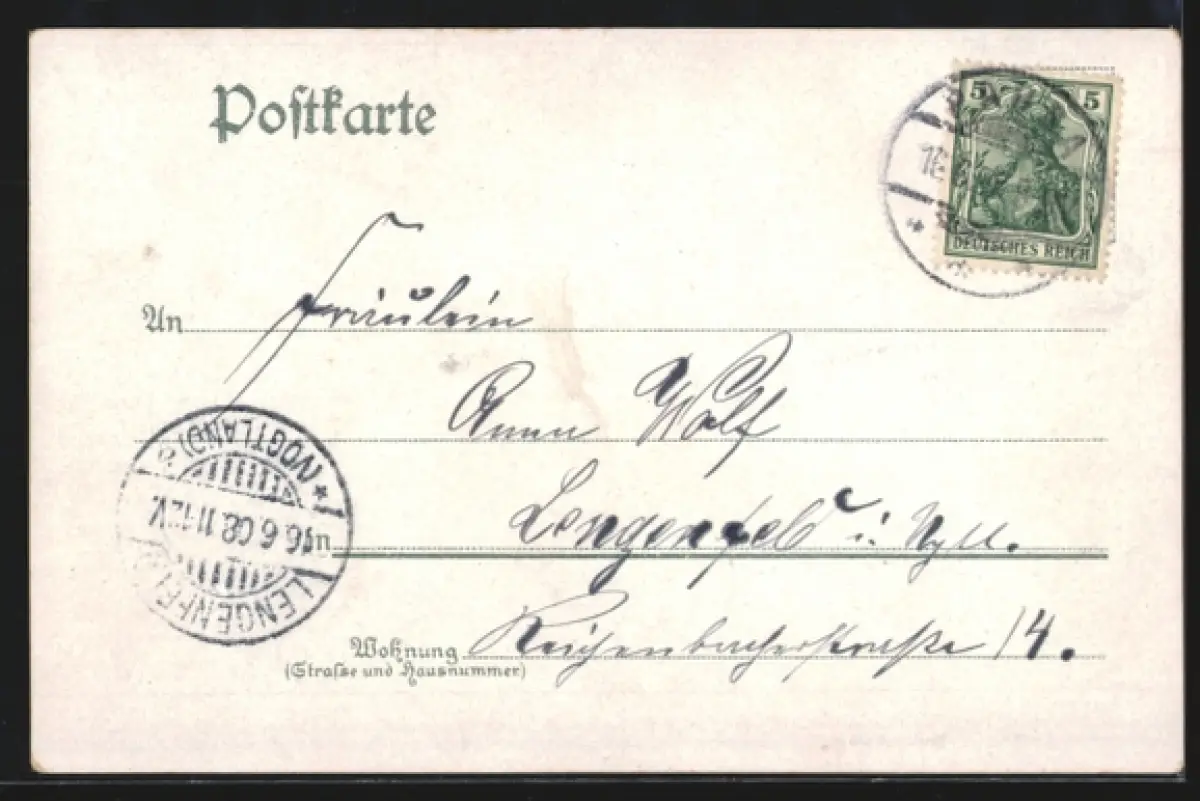 Postkarte
5 5
DEUTSCHES REICH
An Fräulein
Anna Wolf
in Lengenfeld i. Vgtl.
Wohnung Reichenbacherstraße 14.
(Strasse und Hausnummer)
LENGENFELD
16.6.02.11-12V.
(VOGTLAND)